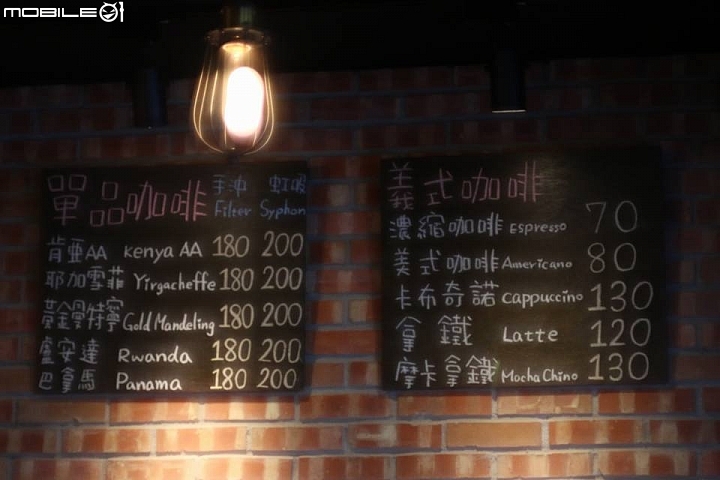 MOBILE01
單品咖啡 手沖 虹吸
Filter Syphon
肯亞AA kenya AA 180 200
耶加雪菲 Yirgacheffe 180 200
黃金曼特寧 Gold Mandeling 180 200
盧安達 Rwanda 180 200
巴拿馬 Panama 180 200
義式咖啡
濃縮咖啡 Espresso 70
美式咖啡 Americano 80
卡布奇諾 Cappuccino 130
拿鐵 Latte 120
摩卡拿鐵 MochaChino 130